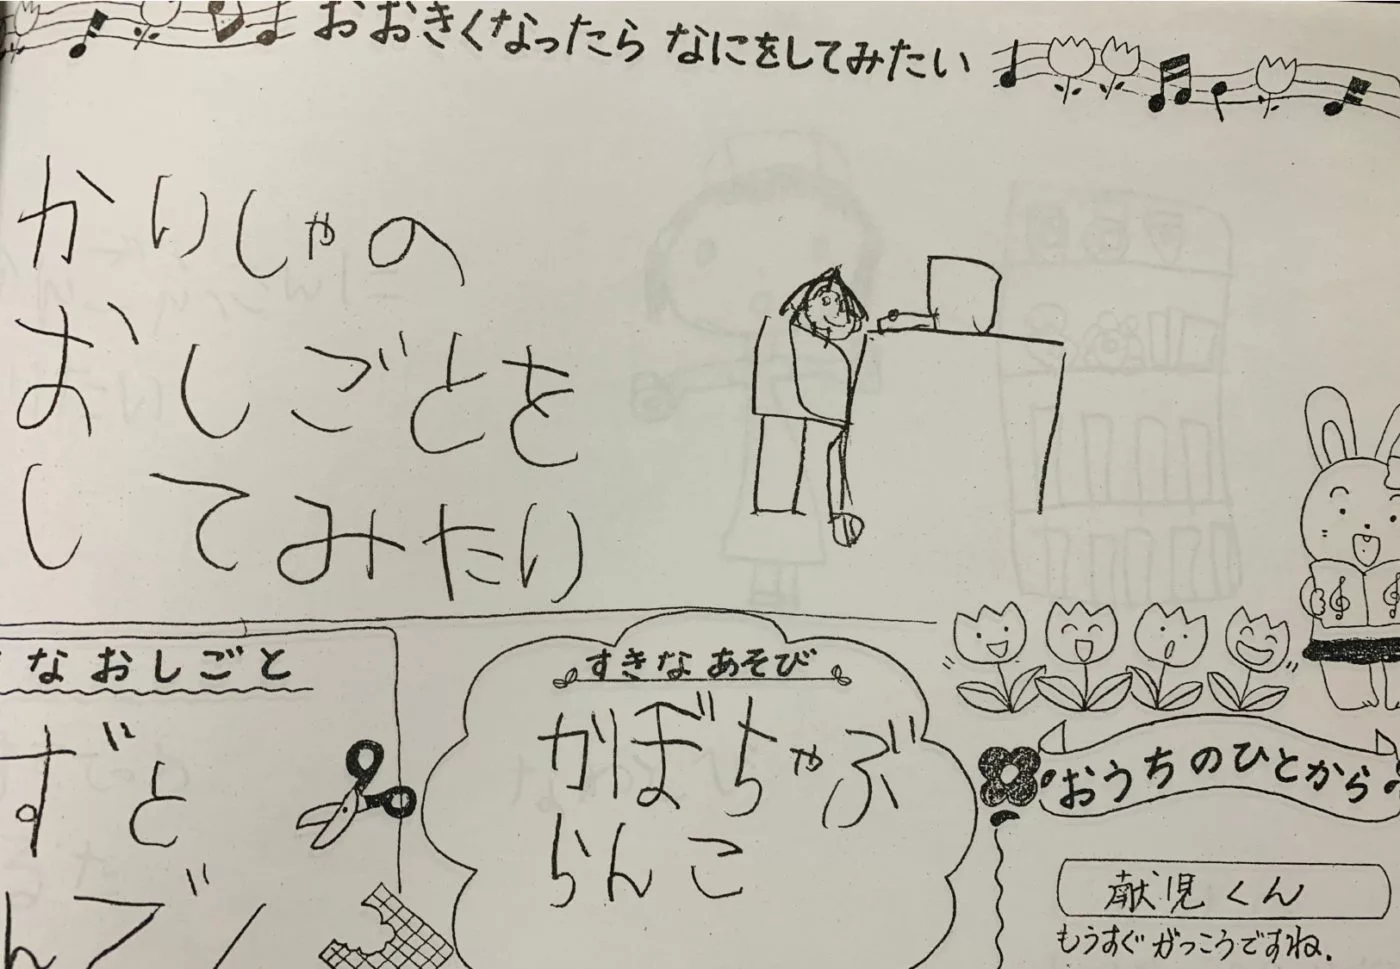 おおきくなったら なにをしてみたい
かいしゃの
おしごとを
してみたい
なおしごと
ずと
すきな あそび
かぼちゃぶ
らんこ
おうちのひとから
献児くん
もうすぐがっこうですね.